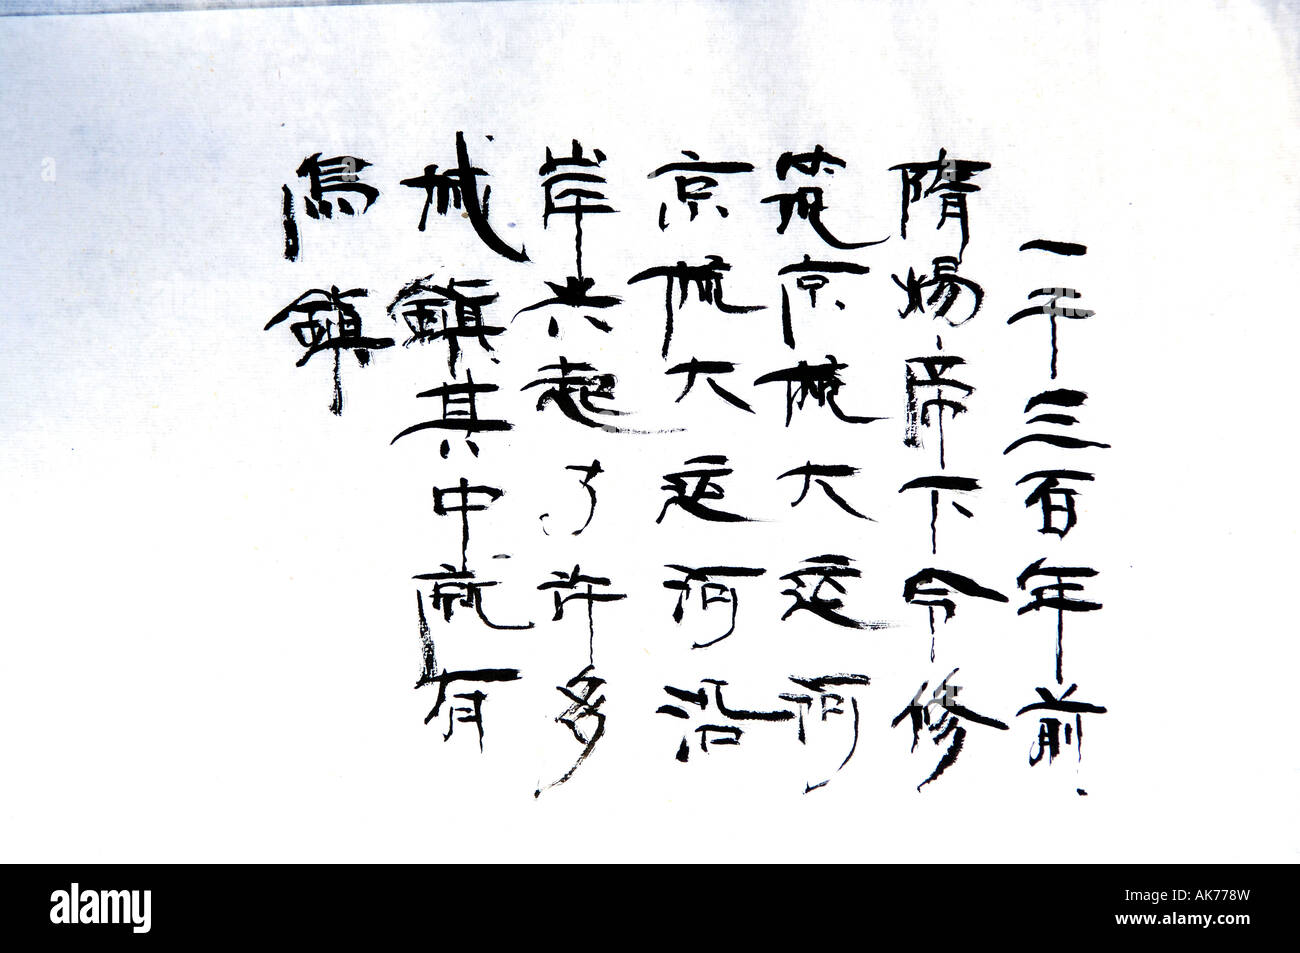 一千三百年前
隋煬帝下令修
筑京杭大运河
京杭大运河沿
岸兴起了许多
城鎮其中就有
烏鎮
a
a
a
a
alamy
Image ID: AK778W
www.alamy.com